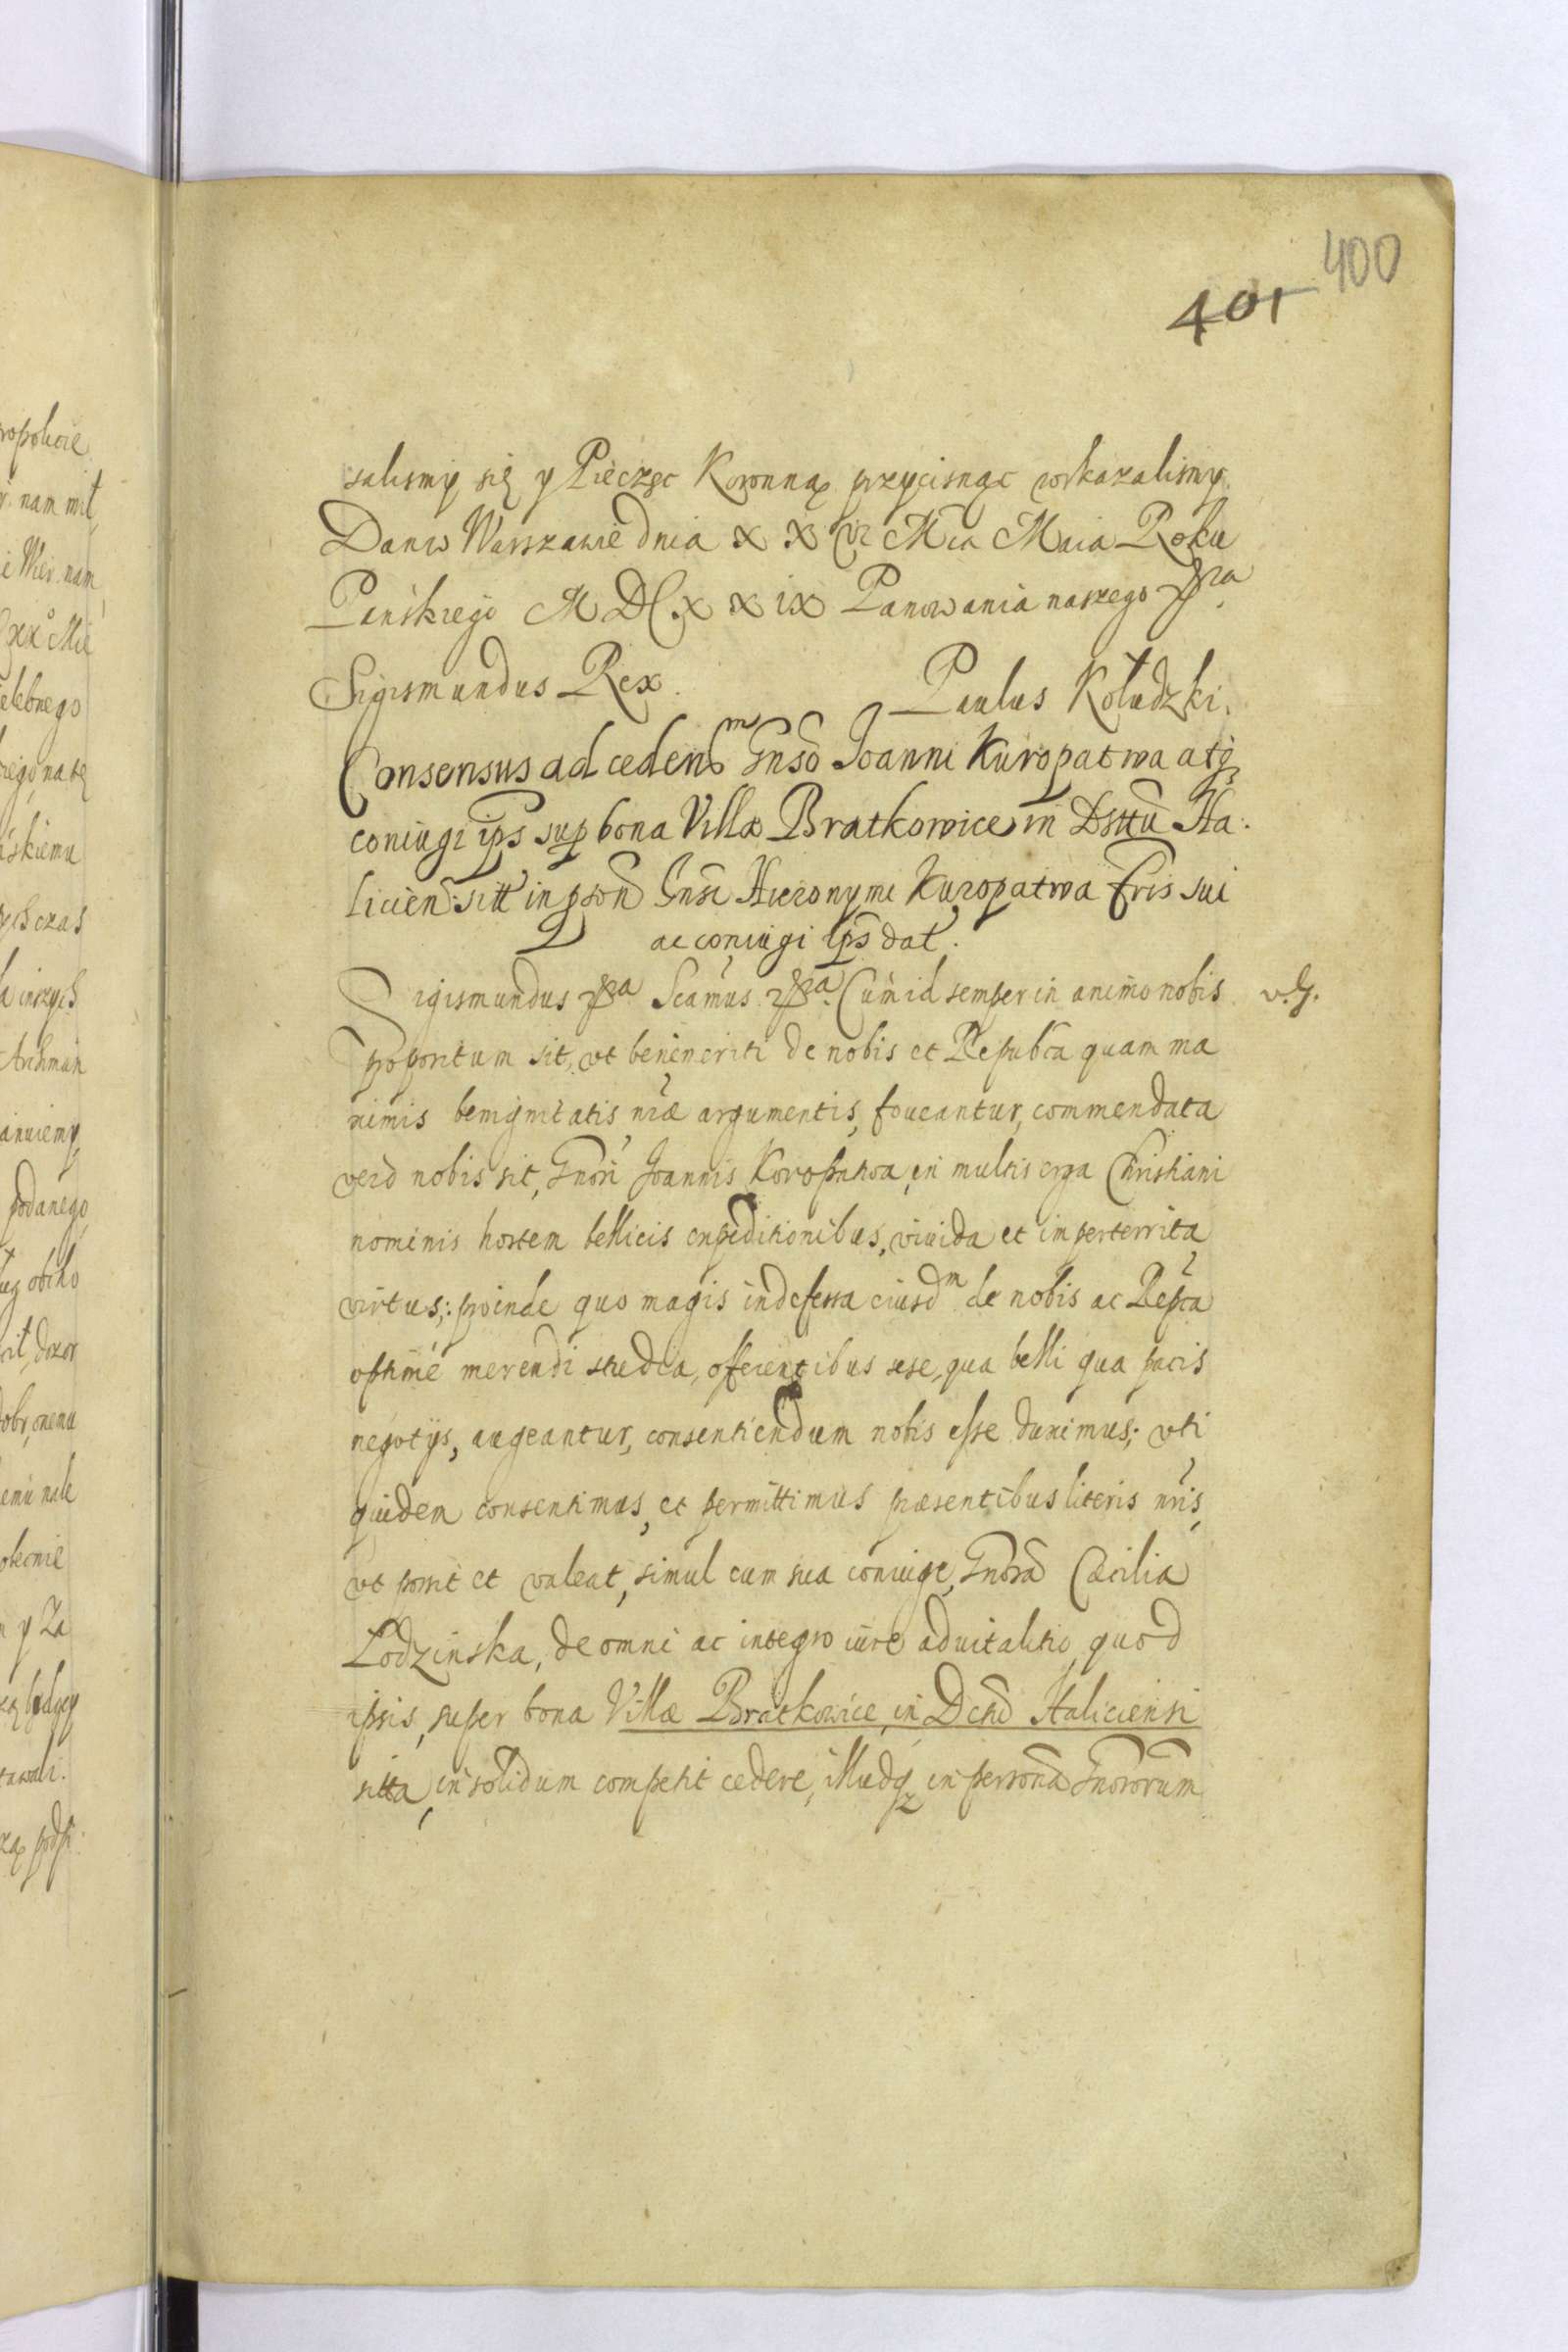 400
401
salismy się y Pieczęc Koronną przycisnąc roskazalismy.
Dan w Warszawie dnia XXVI Mca Maia Roku
Panskiego MDCXXIX Panowania naszego &ra
Sigismundus Rex. Paulus Kołudzki.
Consensus ad cedend̄m Gnso Joanni Kuropatwa atq3
coniugi ips sup bona Villæ Bratkowice in Dsttu Ha:
licien: sitt in pson Gnsi Hieronymi Kuropatwa Fris sui
ac coniugi ips dat.
Sigismundus &ra Scamus &ra. Cum id semper in animo nobis v.G.
propositum sit, vt benemeriti de nobis et Repubca quam ma
ximis benignitatis nræ argumentis, foueantur, commendata
vero nobis sit, Gnosi Joannis Koropatwa, in multis erga Christiani
nominis hostem bellicis expeditionibus, viuida et imperterrita
virtus; proinde quo magis indefessa eiusdm de nobis ac Repca
optime merendi studia, offerentibus sese, qua belli qua pacis
negotijs, augeantur, consentiendum nobis esse duximus; vti
quidem consentimus, et permittimus præsentibus literis nris,
vt possit et valeat, simul cum sua coniuge, Gnosa Cæcilia
Lodzinska, de omni ac integro iure aduitalitio, quod
ipsis, super bona Villæ Bratkowice, in Dctu Haliciensi
sitta, in solidum competit cedere, illudq3 in persona Gnosorum